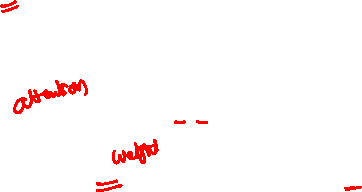 attention
weight